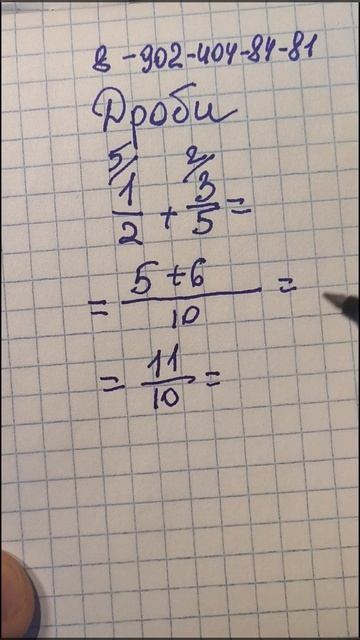 8-902-404-84-81
Дроби
5/ 2/
1/2 + 3/5 =
= 5+6/10 =
= 11/10 =